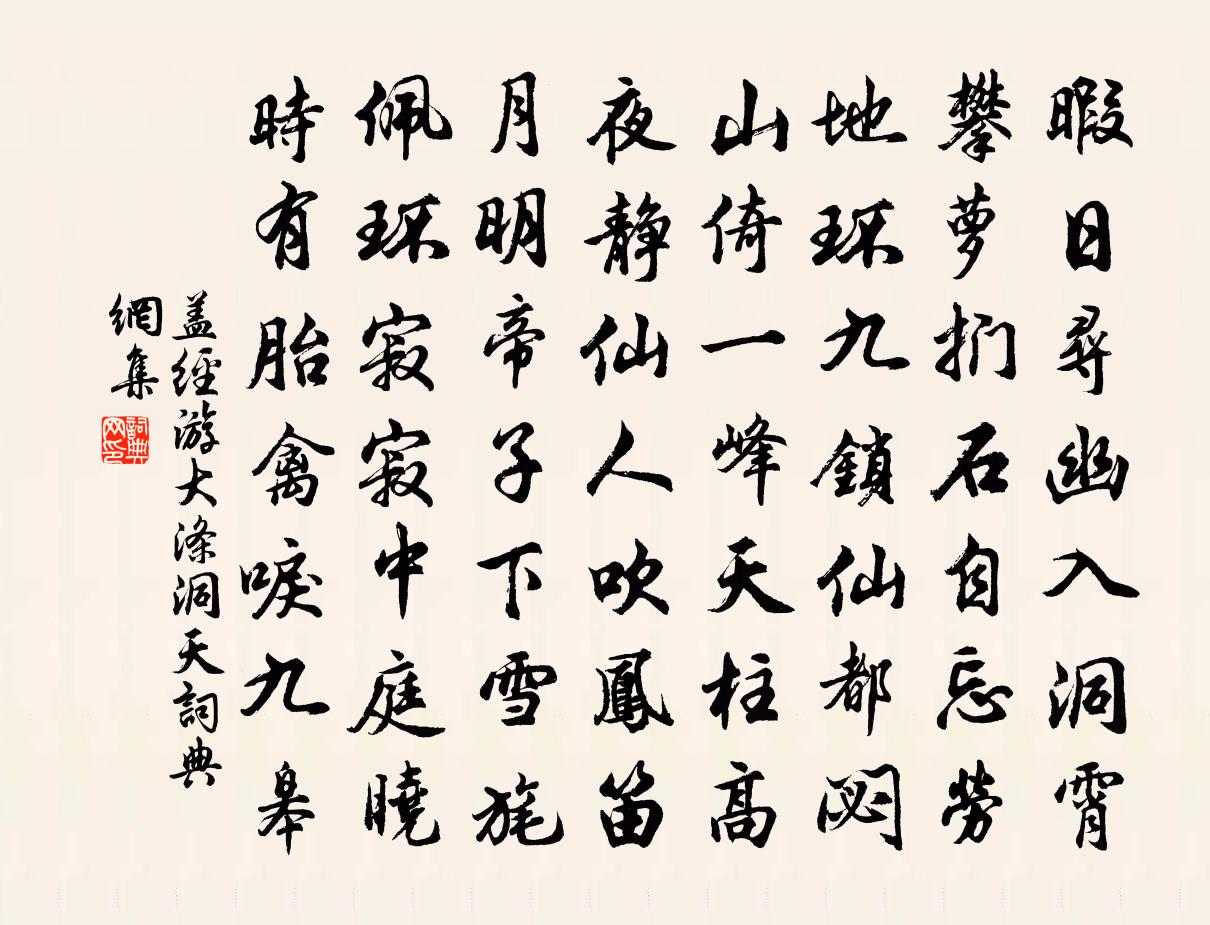 暇日尋幽入洞霄
攀萝捫石自忘勞
地环九鎖仙都閟
山倚一峰天柱高
夜静仙人吹鳳笛
月明帝子下雪旄
佩环寂寂中庭曉
時有胎禽唳九皋
盖經游大涤洞天詞典
網集
詞典
网印